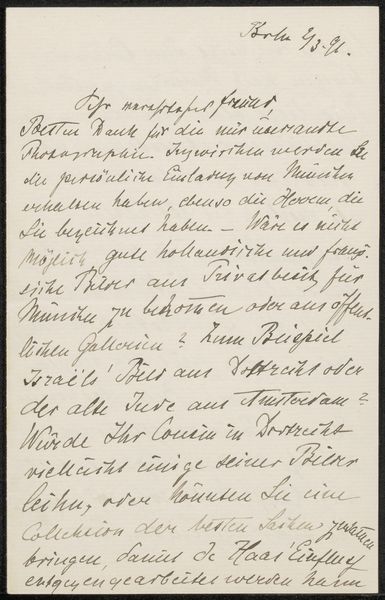 Berlin 2/3. 91.
Ihr werthester Freund,
Besten Dank für die mir übersandte
Photographie. Inzwischen werden Sie
die persönliche Einladung von München
erhalten haben, ebenso die Herren, die
Sie bezeichnet haben. – Wäre es nicht
möglich gute holländische und franzö-
sische Bilder aus Privatbesitz für
München zu bekommen oder aus öffent-
lichen Gallerien? Zum Beispiel
Israëls' Bild aus Dortrecht oder
der alte Jude aus Amsterdam?
Würde Ihr Cousin in Dortrecht
vielleicht einige seiner Bilder
leihn, oder könnten Sie eine
Collektion der besten Sachen zusammen
bringen, damit de Haas' Einfluß
entgegengearbeitet werden kann